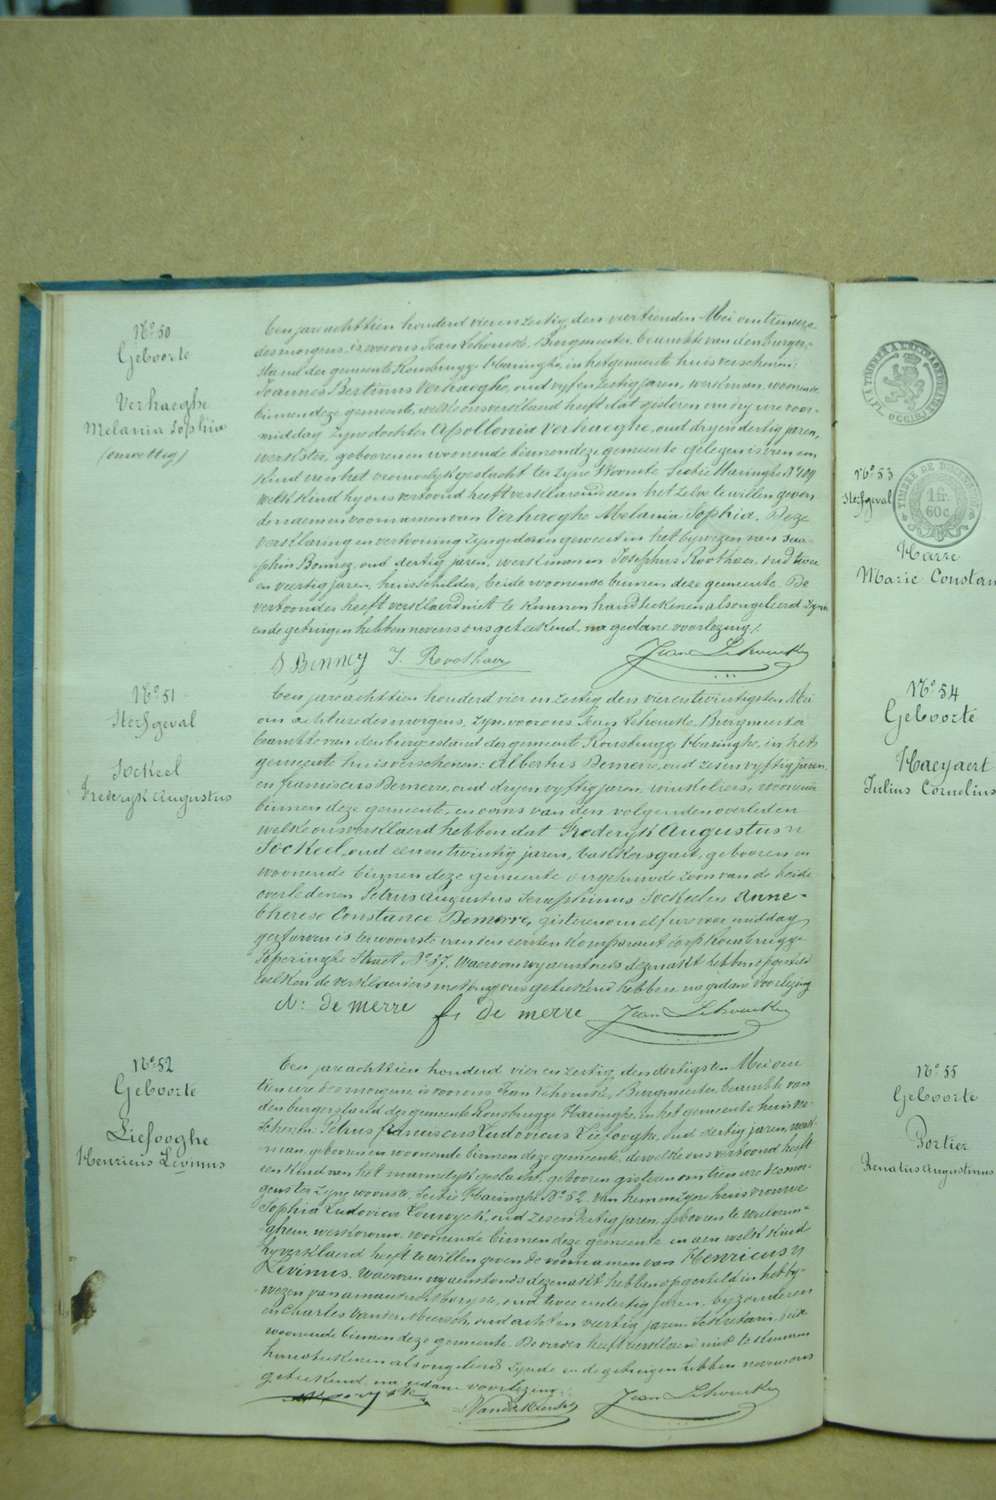 N° 50
Geboorte
Verhaeghe
Melania Sophia
(onwettig)
Een jare achttien honderd vier en zestig, den viertienden Mei om tien ure
des morgens, is voor ons Jean Lehouck, Burgmeester beambte van den burger-
stand der gemeente Rousbrugge Haringhe, in het gemeente huis verschenen:
Joannes Bertinus Verhaeghe, oud vyf en zestig jaren, werkman, woonende
binnen deze gemeente, welke ons verklaard heeft dat gisteren om dry ure voor-
middag zyne dochter Apollonia Verhaeghe, oud dry en dertig jaren,
werkster, gebooren en woonende binnen deze gemeente gelegen is van een
kind van het vrouwelyk geslacht ter zyne Woonste Sectie Haringhe N° 109
welk kind hy ons vertoond heeft verklarende aen het zelve te willen geven
den naem en voornamen van Verhaeghe Melania Sophia. Deze
verklaring en vertooning zyn gedaen geweest in het bywezen van Sera-
phin Bonney, oud dertig jaren, werkman en Josephus Roothaer, oud twee
en veertig jaren, huisschilder, beide woonende binnen deze gemeente. De
vertoonder heeft verklaerd niet te kunnen handteekenen als ongeleerd zynde
en de getuigen hebben nevens ons geteekend, na gedane voorlezing.
S Bonney J. Roothaer Jean Lehouck
N° 51
Sterfgeval
Sockeel
Frederyk Augustus
Een jare achttien honderd vier en zestig den vier en twintigsten Mei
om acht ure des morgens, zyn voor ons Jean Lehouck, Burgmeester
beambte van den burgerstand der gemeente Rousbrugge Haringhe, in het
gemeente huis verschenen: Albertus Demerre, oud zes en vyftig jaren
en franciscus Demerre, oud dry en vyftig jaren, woonende
binnen deze gemeente, en ooms van den volgenden overleden
welke ons verklaerd hebben dat Frederyk Augustus
Sockeel, oud een en twintig jaren, geboren en
woonende binnen deze gemeente ongehuwde zoon van de beide
overledenen Petrus Augustus Seraphinus Sockeel en Anne-
Therese Constance Demerre, gisteren om elf ure voor middag,
gestorven is ter woonste van den eersten komparant dorp Rousbrugge
Poperinghe Straet N° 37. Waervan wy aenstonds dezen akt hebben opgesteld
welken de verklaerders met ons geteekend hebben na gedane voorlezing
A: de merre f. de merre Jean Lehouck
N° 52
Geboorte
Liefooghe
Henricus Livinus
Een jare achttien honderd vier en zestig, den dertigsten Mei om
tien ure des morgens is voor ons Jean Lehouck, Burgmeester, beambte van
den burgerstand der gemeente Rousbrugge Haringhe, in het gemeente huis ver-
schenen: Petrus franciscus Ludovicus Liefooghe, oud dertig jaren, werk-
man, geboren en woonende binnen deze gemeente, dewelke ons vertoond heeft
een kind van het mannelyk geslacht, geboren gisteren om tien ure des mor-
gens ter zyne woonste, Sectie Haringhe N° 52, van hem en zyne huisvrouwe
Sophia Ludovica oud zes en dertig jaren, geboren te
werkvrouw, woonende binnen deze gemeente en aen welk kind
hy verklaerd heeft te willen geven de voornamen van Henricus
Livinus. Waervan wy aenstonds dezen akt hebben opgesteld in het by-
wezen van oud twee en dertig jaren, byzonderen
en Charles Vander Meersch, oud acht en veertig jaren Sekretaris, beide
woonende binnen deze gemeente. De vader heeft verklaerd niet te kunnen
handteekenen als ongeleerd zynde en de getuigen hebben nevens ons
geteekend, na gedane voorlezing.
Vandermeersch Jean Lehouck
TIMBRE A L'EXTRAORDINAIRE
FL. OCCID.
N° 53
Sterfgeval
TIMBRE DE DIMENSION
1 fr.
60 c.
Harre
Marie Constan
N° 54
Geboorte
Haeyaert
Julius Cornelius
N° 55
Geboorte
Portier
Renatus Augustinus